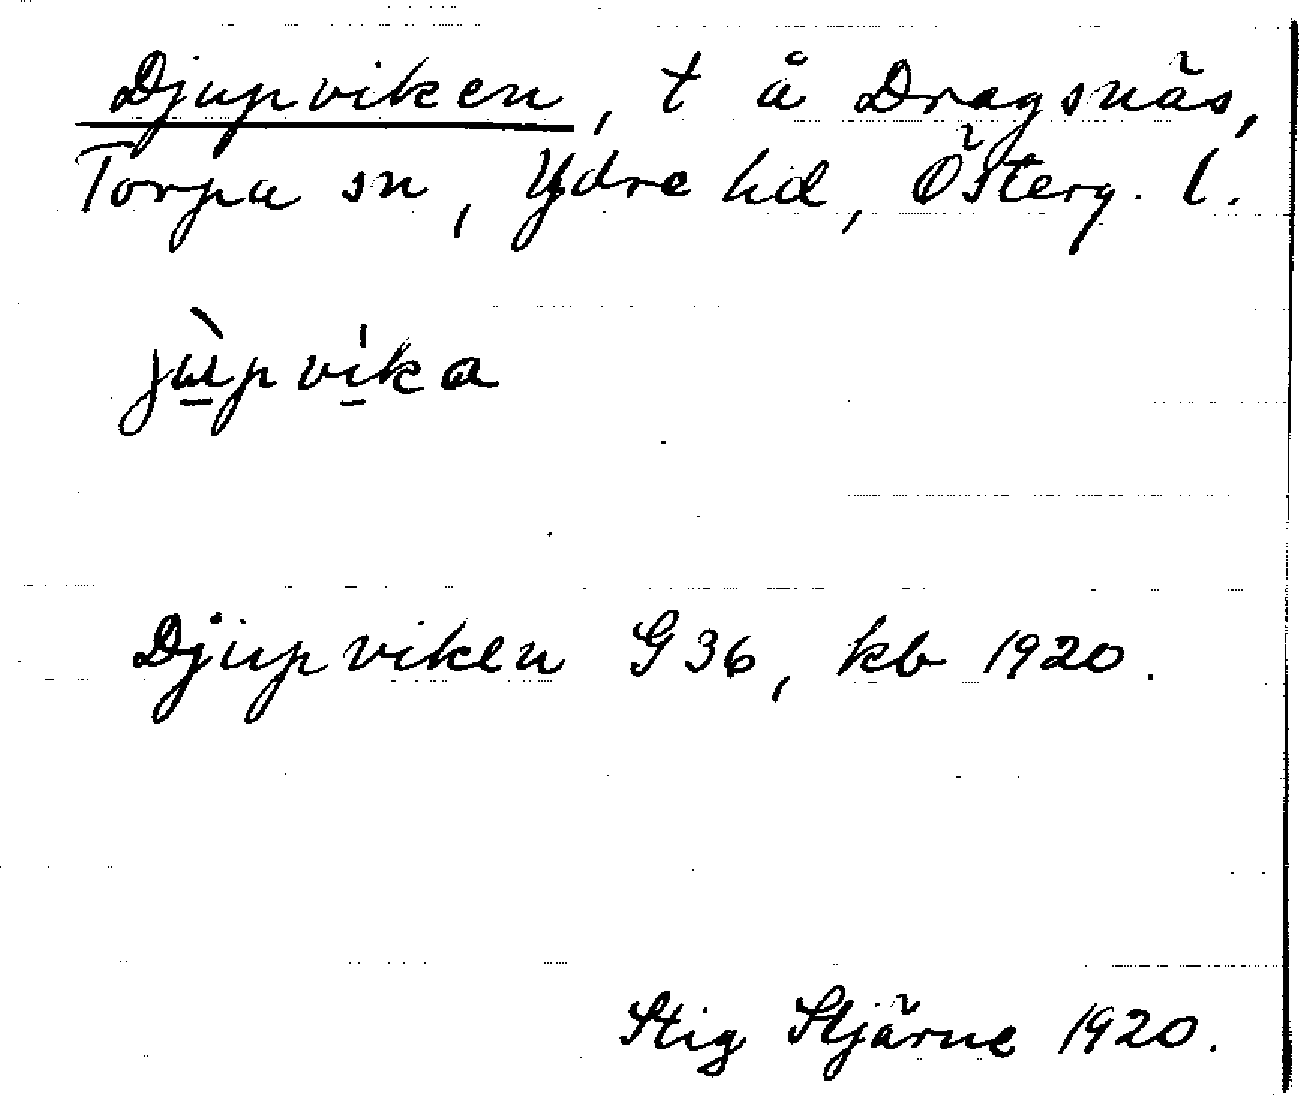 Djupviken, t å Dragsnäs,
Torpa sn, Ydre hd, Österg. l.
jùpvíka
Djupviken G 36, kb 1920.
Stig Stjärne 1920.